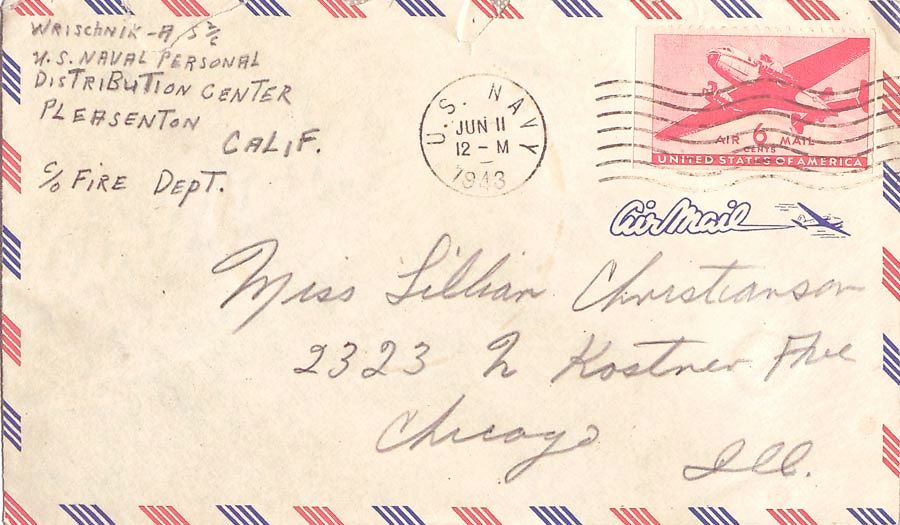 WRISCHNIK-A S 2/c
U.S. NAVAL PERSONAL
DISTRIBUTION CENTER
PLEASENTON
CALIF.
c/o FIRE DEPT.
U.S. NAVY
JUN 11
12 - M
1943
AIR 6 MAIL
CENTS
UNITED STATES OF AMERICA
Air Mail
Miss Lillian Christianson
2323 N Kostner Ave
Chicago
Ill.